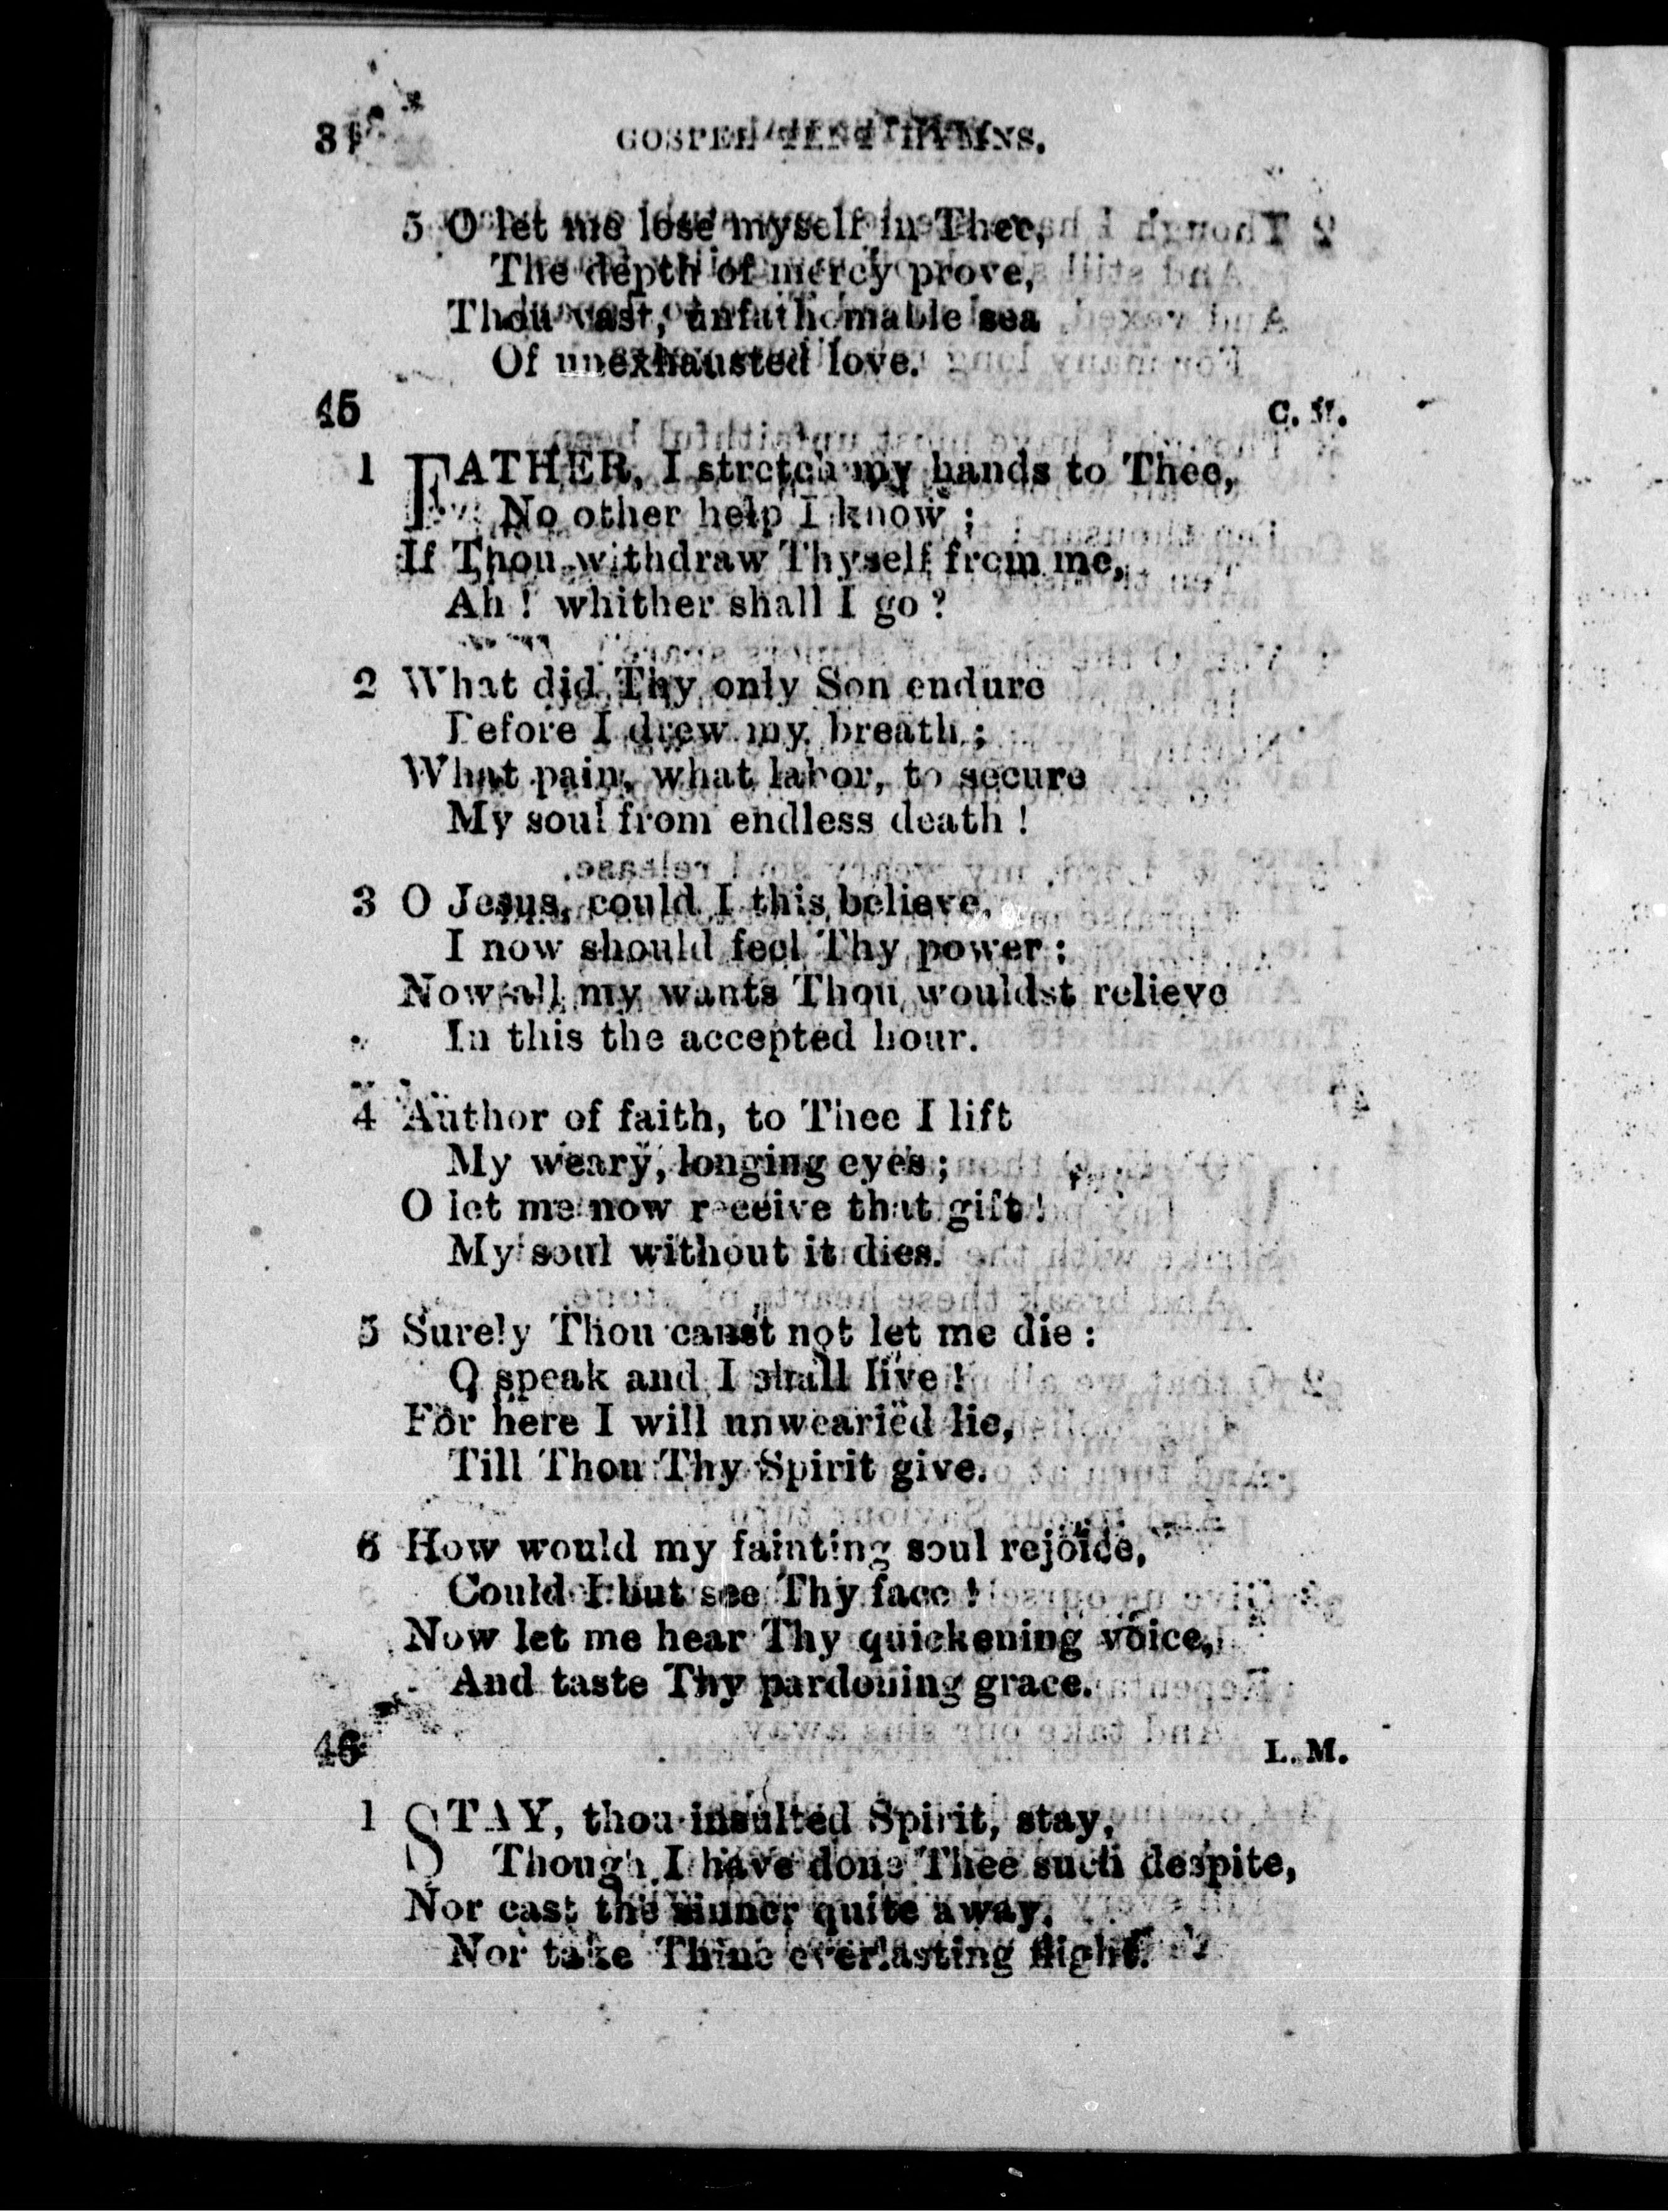 GOSPEL TENT HYMNS.
5 O let me lose myself in Thee,
The depth of mercy prove,
Thou vast, unfathomable sea
Of unexhausted love.
45 C. M.
1 FATHER, I stretch my hands to Thee,
No other help I know ;
If Thou withdraw Thyself from me,
Ah ! whither shall I go ?
2 What did Thy only Son endure
Before I drew my breath ;
What pain, what labor, to secure
My soul from endless death !
3 O Jesus, could I this believe,
I now should feel Thy power ;
Now all my wants Thou wouldst relieve
In this the accepted hour.
4 Author of faith, to Thee I lift
My weary, longing eyes ;
O let me now receive that gift !
My soul without it dies.
5 Surely Thou canst not let me die :
O speak and I shall live !
For here I will unwearied lie,
Till Thou Thy Spirit give.
6 How would my fainting soul rejoice,
Could I but see Thy face !
Now let me hear Thy quickening voice,
And taste Thy pardoning grace.
46 L. M.
1 STAY, thou insulted Spirit, stay,
Though I have done Thee such despite,
Nor cast the sinner quite away,
Nor take Thine everlasting flight.